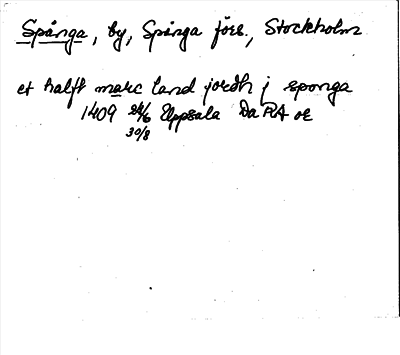 Spånga, by, Spånga förs., Stockholm
et halft marc land jordh j sponga
1409 24/6 Uppsala DaRA or
30/8